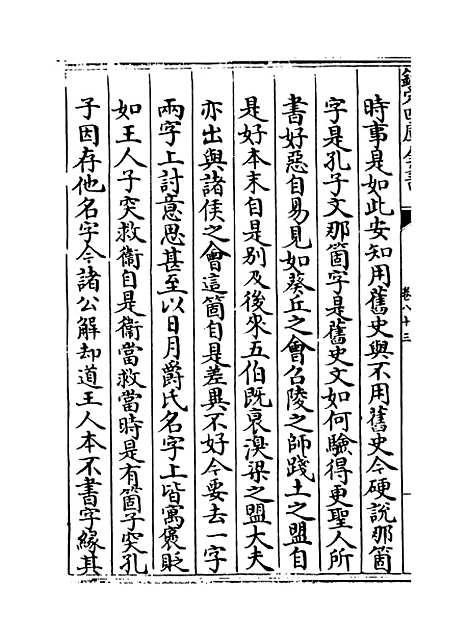 欽定四庫全書
卷八十三
時事是如此安知用舊史與不用舊史今硬說那箇
字是孔子文那箇字是舊史文如何驗得更聖人所
書好惡自易見如葵丘之會召陵之師踐土之盟自
是好本末自是别及後來五伯既衰溴梁之盟大夫
亦出與諸侯之會這箇自是差異不好今要去一字
兩字上討意思甚至以日月爵氏名字上皆寓襃貶
如王人子突救衞自是衞當救當時是有箇子突孔
子因存他名字今諸公解却道王人本不書字緣其